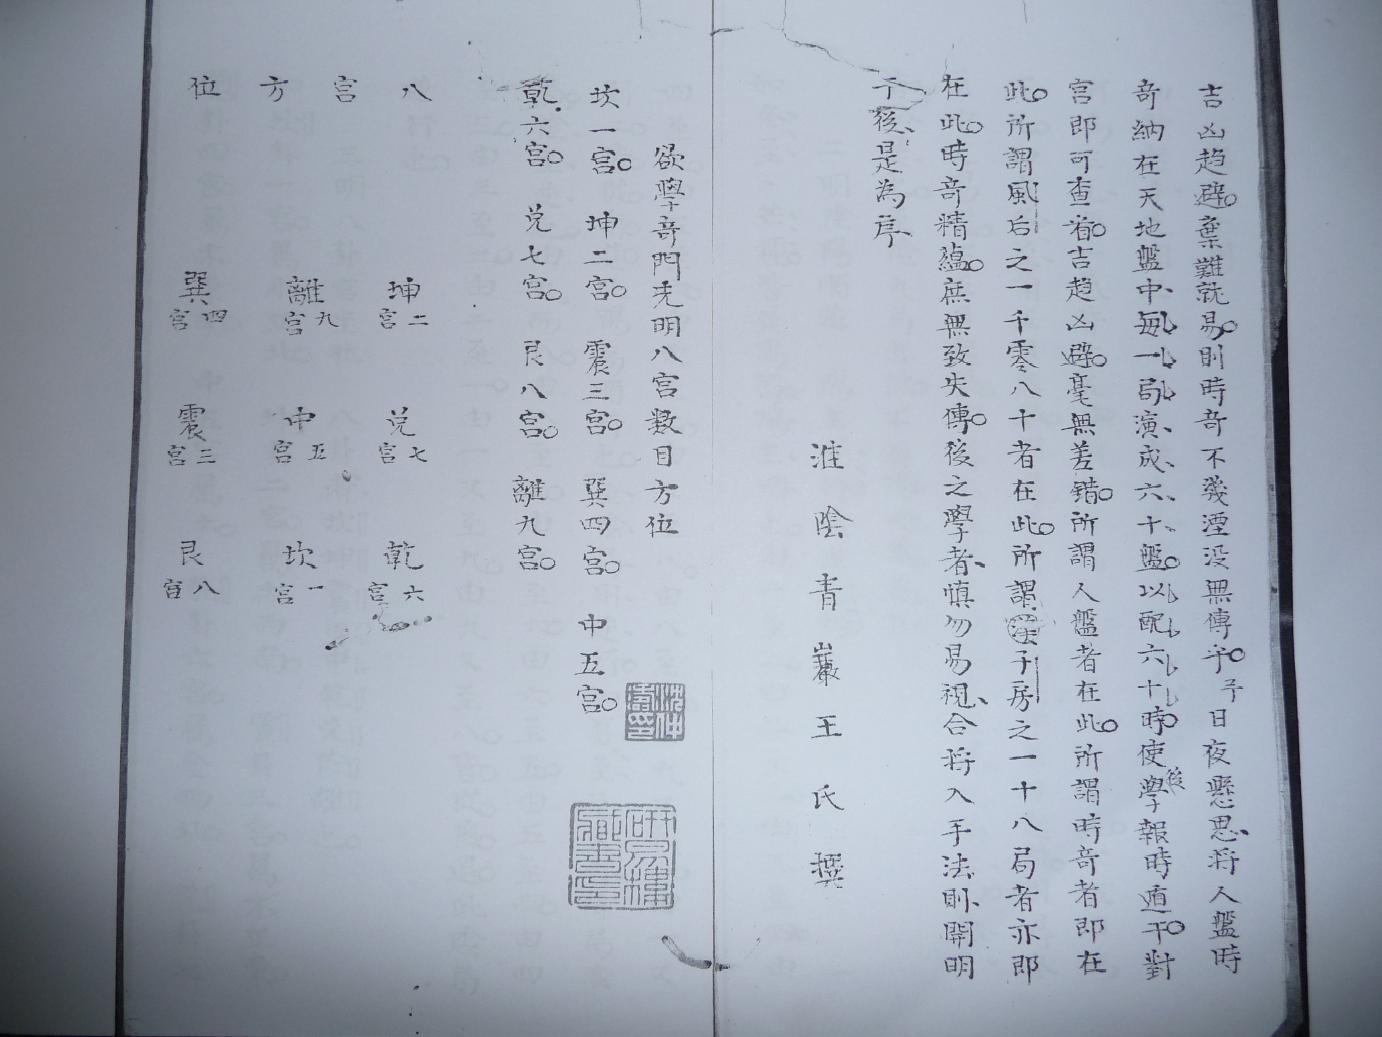 吉凶趋避。棄難就易。則時奇不幾湮没無傳乎。予日夜懸思、将人盤時
奇納在天地盤中、每一局、演成、六十盤。以配六十時。使後學報時直干。對
宮即可查看。吉趋凶避。毫無差錯。所謂人盤者在此。所謂時奇者即在
此。所謂風后之一千零八十者在此。所謂子房之一十八局者亦即
在此。時奇精蘊。庶無致失傳。後之學者、慎勿易視、合将入手法則、開明
于後、是為序、
淮陰青巖王氏撰
欲學奇門先明八宮数目方位
坎一宮。坤二宮。震三宮。巽四宮。中五宮。
乾六宮。兑七宮。艮八宮。離九宮。
沈仲濤印
研易樓藏書印
八宮方位
坤二宮 兑七宮 乾六宮
離九宮 中五宮 坎一宮
巽四宮 震三宮 艮八宮